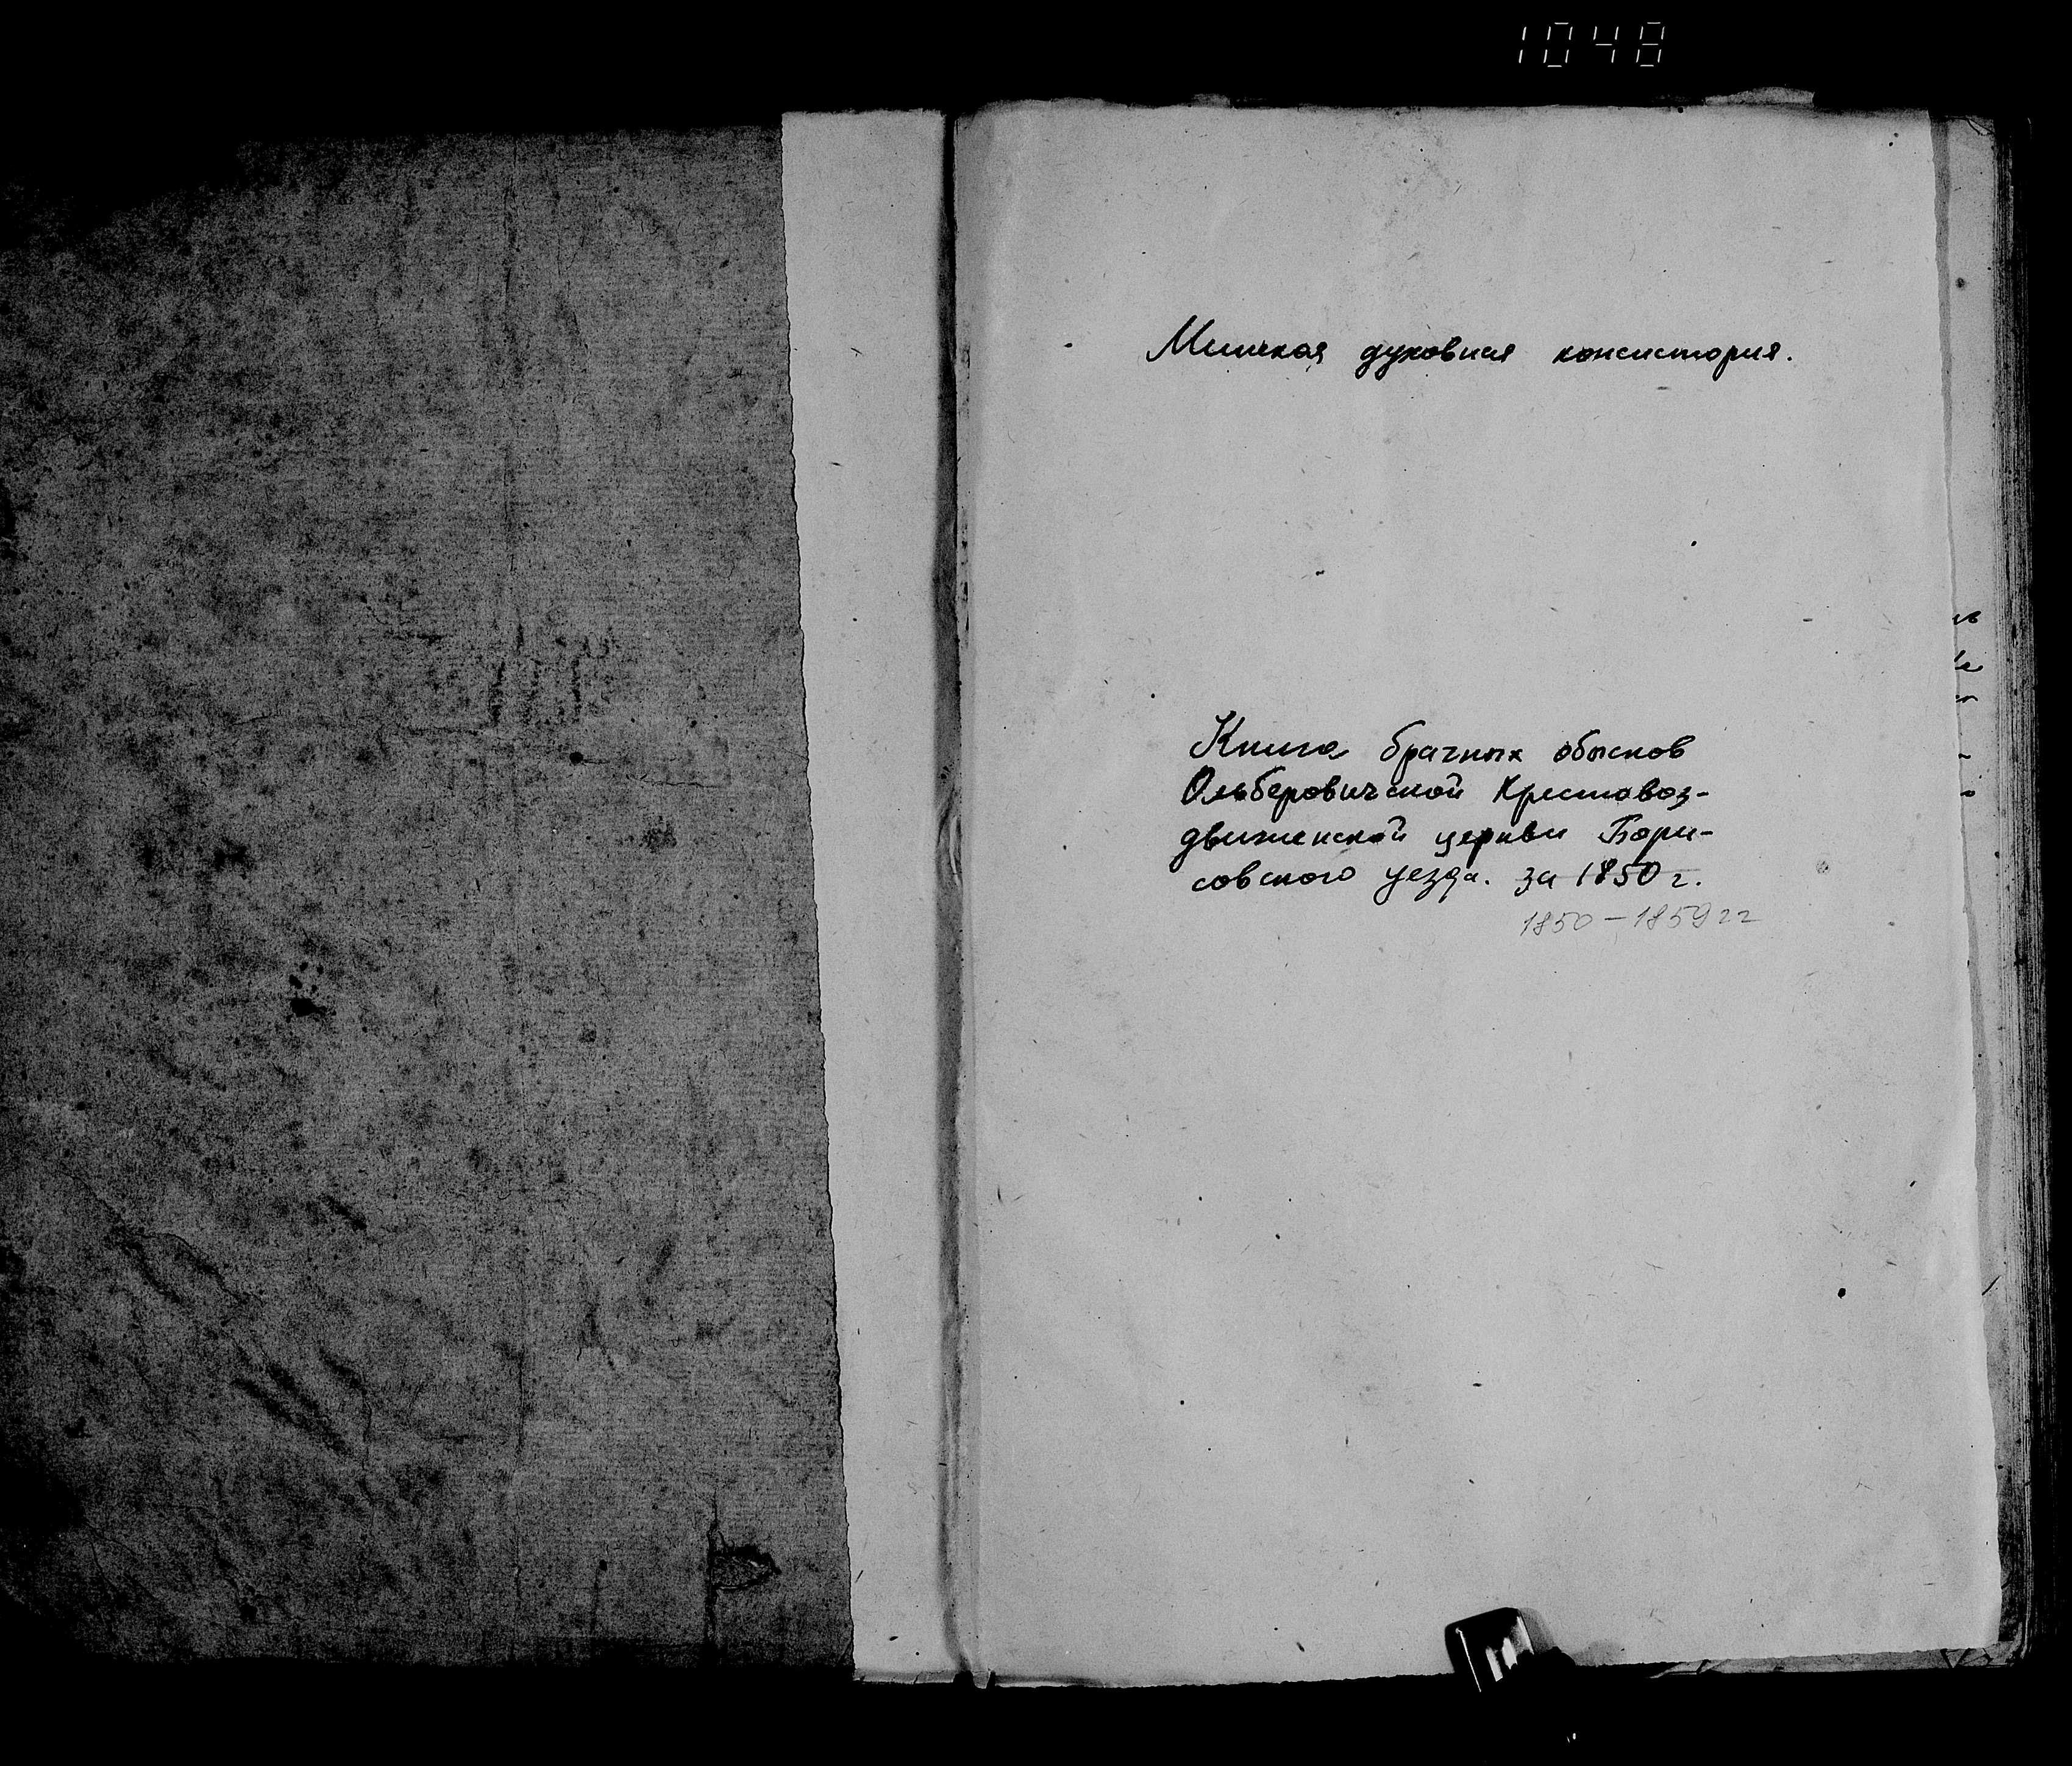 1048
Минская духовная консистория.
Книга брачных обысков
Ольберовичской Крестовоз-
движенской церкви Бори-
совского уезда. за 1850 г.
1850-1859 гг